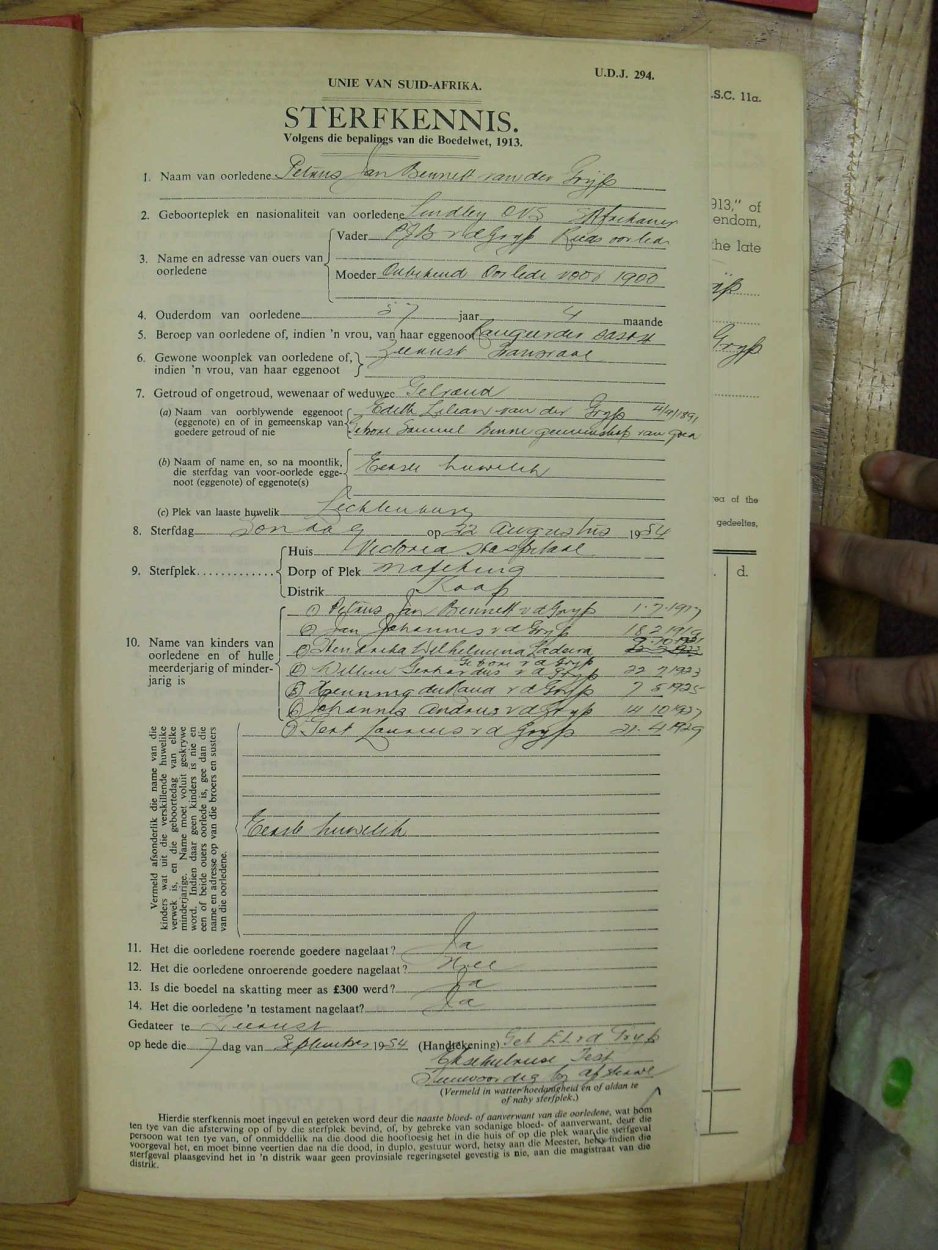 U.D.J. 294.
UNIE VAN SUID-AFRIKA.
STERFKENNIS.
Volgens die bepalings van die Boedelwet, 1913.
1. Naam van oorledene Petrus Jan Bennett van der Gryp
2. Geboorteplek en nasionaliteit van oorledene Lindley OVS Afrikaner
3. Name en adresse van ouers van oorledene
Vader PJB v d Gryp Reeds oorlede
Moeder Onbekend Oorlede voor 1900
4. Ouderdom van oorledene 57 jaar 4 maande
5. Beroep van oorledene of, indien 'n vrou, van haar eggenoot
6. Gewone woonplek van oorledene of, indien 'n vrou, van haar eggenoot Zeerust Transvaal
7. Getroud of ongetroud, wewenaar of weduwee Getroud
(a) Naam van oorblywende eggenoot (eggenote) en of in gemeenskap van goedere getroud of nie
Edith Lilian van der Gryp 4/9/1891
gebore Samuel Binne gemeenskap van goed
(b) Naam of name en, so na moontlik, die sterfdag van voor-oorlede eggenoot (eggenote) of eggenote(s) Eerste huwelik
(c) Plek van laaste huwelik Lichtenburg
8. Sterfdag Sondag op 22 Augustus 1954
9. Sterfplek
Huis Victoria Hospitaal
Dorp of Plek Mafeking
Distrik Kaap
10. Name van kinders van oorledene en of hulle meerderjarig of minderjarig is
(1) Petrus Jan Bennett v d Gryp 1.7.1917
(2) Jan Johannes v d Gryp 18 2
(3) Hendrika Wilhelmina
Gebore v d Gryp
(4) Willem Gerhardus v d Gryp 22 7 1923
(5) Henning v d Gryp 7 5 1925
(6) Johannes Andries v d Gryp 14 10 1927
(7) v d Gryp 21.4.1929
Vermeld afsonderlik die name van die kinders wat uit die verskillende huwelike verwek is, en die geboortedag van elke minderjarige. Name moet voluit geskrywe word. Indien daar geen kinders is nie en een of beide ouers oorlede is, gee dan die name en adresse op van die broers en susters van die oorledene.
Eerste huwelik
11. Het die oorledene roerende goedere nagelaat? Ja
12. Het die oorledene onroerende goedere nagelaat? Nee
13. Is die boedel na skatting meer as £300 werd? Ja
14. Het die oorledene 'n testament nagelaat? Ja
Gedateer te Zeerust
op hede die 7 dag van September 1954 (Handtekening) Get E L v d Gryp
Eksekutrise Test
Teenwoordig by afsterwe
(Vermeld in watter hoedanigheid en of aldan te of naby sterfplek.)
Hierdie sterfkennis moet ingevul en geteken word deur die naaste bloed- of aanverwant van die oorledene, wat hom
ten tye van die afsterwing op of by die sterfplek bevind, of, by gebreke van sodanige bloed- of aanverwant, deur die
persoon wat ten tye van, of onmiddellik na die dood die hooftoesig het in die huis of op die plek waar die sterfgeval
voorgeval het, en moet binne veertien dae na die dood, in duplo, gestuur word, hetsy aan die Meester, hetsy indien die
sterfgeval plaasgevind het in 'n distrik waar geen provinsiale regeringsetel gevestig is nie, aan die magistraat van die
distrik.
.S.C. 11a.
913," of
endom,
the late
Gryp
rea of the
gedeeltes,
d.